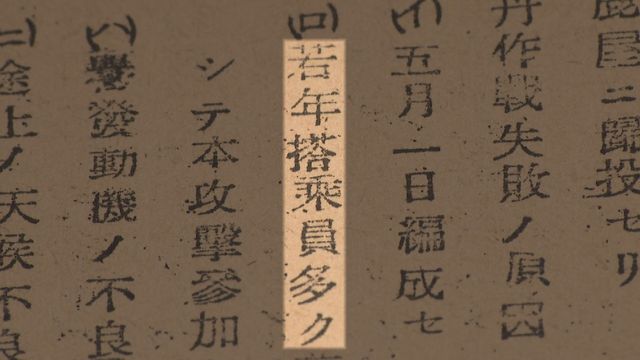 鹿屋ニ歸投セリ
丹作戰失敗ノ原因
(イ)五月一日編成セ
(ロ)若年搭乘員多ク
シテ本攻擊參加
(ハ)譽發動機ノ不良
(ニ)途上ノ天候不良